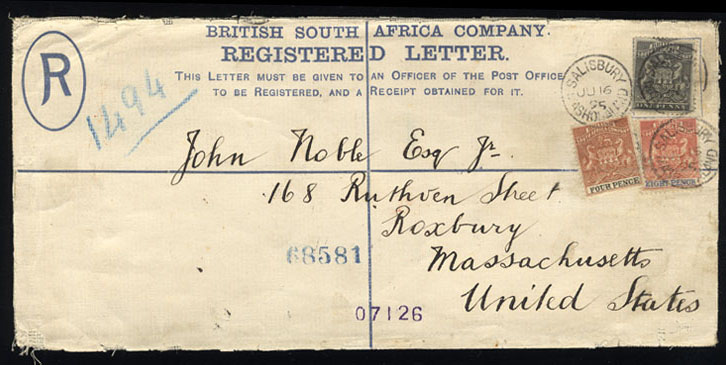 BRITISH SOUTH AFRICA COMPANY.
REGISTERED LETTER.
THIS LETTER MUST BE GIVEN TO AN OFFICER OF THE POST OFFICE
TO BE REGISTERED, AND A RECEIPT OBTAINED FOR IT.
R
1494
SALISBURY
JU 16
95
ONE PENNY
SALISBURY
FOUR PENCE
EIGHT PENCE
John Noble Esq Jr.
168 Ruthven Street
Roxbury
Massachusetts
United States
68581
07126